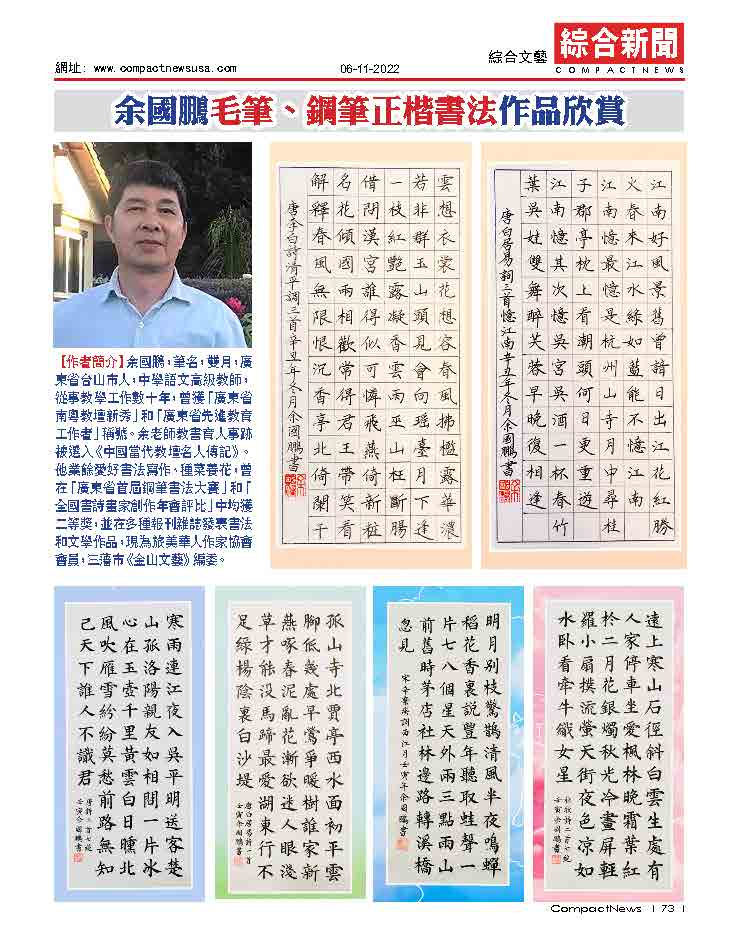 綜合文藝
綜合新聞
COMPACTNEWS
網址: www.compactnewsusa.com
06-11-2022
余國鵬毛筆、鋼筆正楷書法作品欣賞
【作者簡介】余國鵬,筆名,雙月,廣
東省台山市人,中學語文高級教師,
從事教學工作數十年,曾獲「廣東省
南粵教壇新秀」和「廣東省先進教育
工作者」稱號。余老師教書育人事跡
被選入《中國當代教壇名人傳記》。
他業餘愛好書法寫作、種菜養花,曾
在「廣東省首屆鋼筆書法大賽」和「
全國書詩畫家創作年會評比」中均獲
二等獎,並在多種報刊雜誌發表書法
和文學作品,現為旅美華人作家協會
會員,三藩市《金山文藝》編委。
雲想衣裳花想容春風拂檻露華濃
若非群玉山頭見會向瑤臺月下逢
一枝紅艷露凝香雲雨巫山枉斷腸
借問漢宮誰得似可憐飛燕倚新粧
名花傾國兩相歡常得君王帶笑看
解釋春風無限恨沉香亭北倚闌干
唐李白詩清平調三首辛丑年冬月余國鵬書
江南好風景舊曾諳日出江花紅勝
火春來江水綠如藍能不憶江南
江南憶最憶是杭州山寺月中尋桂
子郡亭枕上看潮頭何日更重遊
江南憶其次憶吳宮吳酒一杯春竹
葉吳娃雙舞醉芙蓉早晚復相逢
唐白居易詞三首憶江南辛丑年冬月余國鵬書
寒雨連江夜入吳平明送客楚
山孤洛陽親友如相問一片冰
心在玉壺千里黃雲白日曛北
風吹雁雪紛紛莫愁前路無知
己天下誰人不識君
唐詩二首七絕
壬寅余國鵬書
孤山寺北賈亭西水面初平雲
腳低幾處早鶯爭暖樹誰家新
燕啄春泥亂花漸欲迷人眼淺
草才能沒馬蹄最愛湖東行不
足綠楊陰裏白沙堤
唐白居易詩一首
壬寅余國鵬書
明月別枝驚鵲清風半夜鳴蟬
稻花香裏說豐年聽取蛙聲一
片七八個星天外兩三點雨山
前舊時茅店社林邊路轉溪橋
忽見
宋辛棄疾詞西江月壬寅年余國鵬書
遠上寒山石徑斜白雲生處有
人家停車坐愛楓林晚霜葉紅
於二月花銀燭秋光冷畫屏輕
羅小扇撲流螢天街夜色涼如
水臥看牽牛織女星
杜牧詩二首七絕
壬寅余國鵬書
CompactNews | 73 |